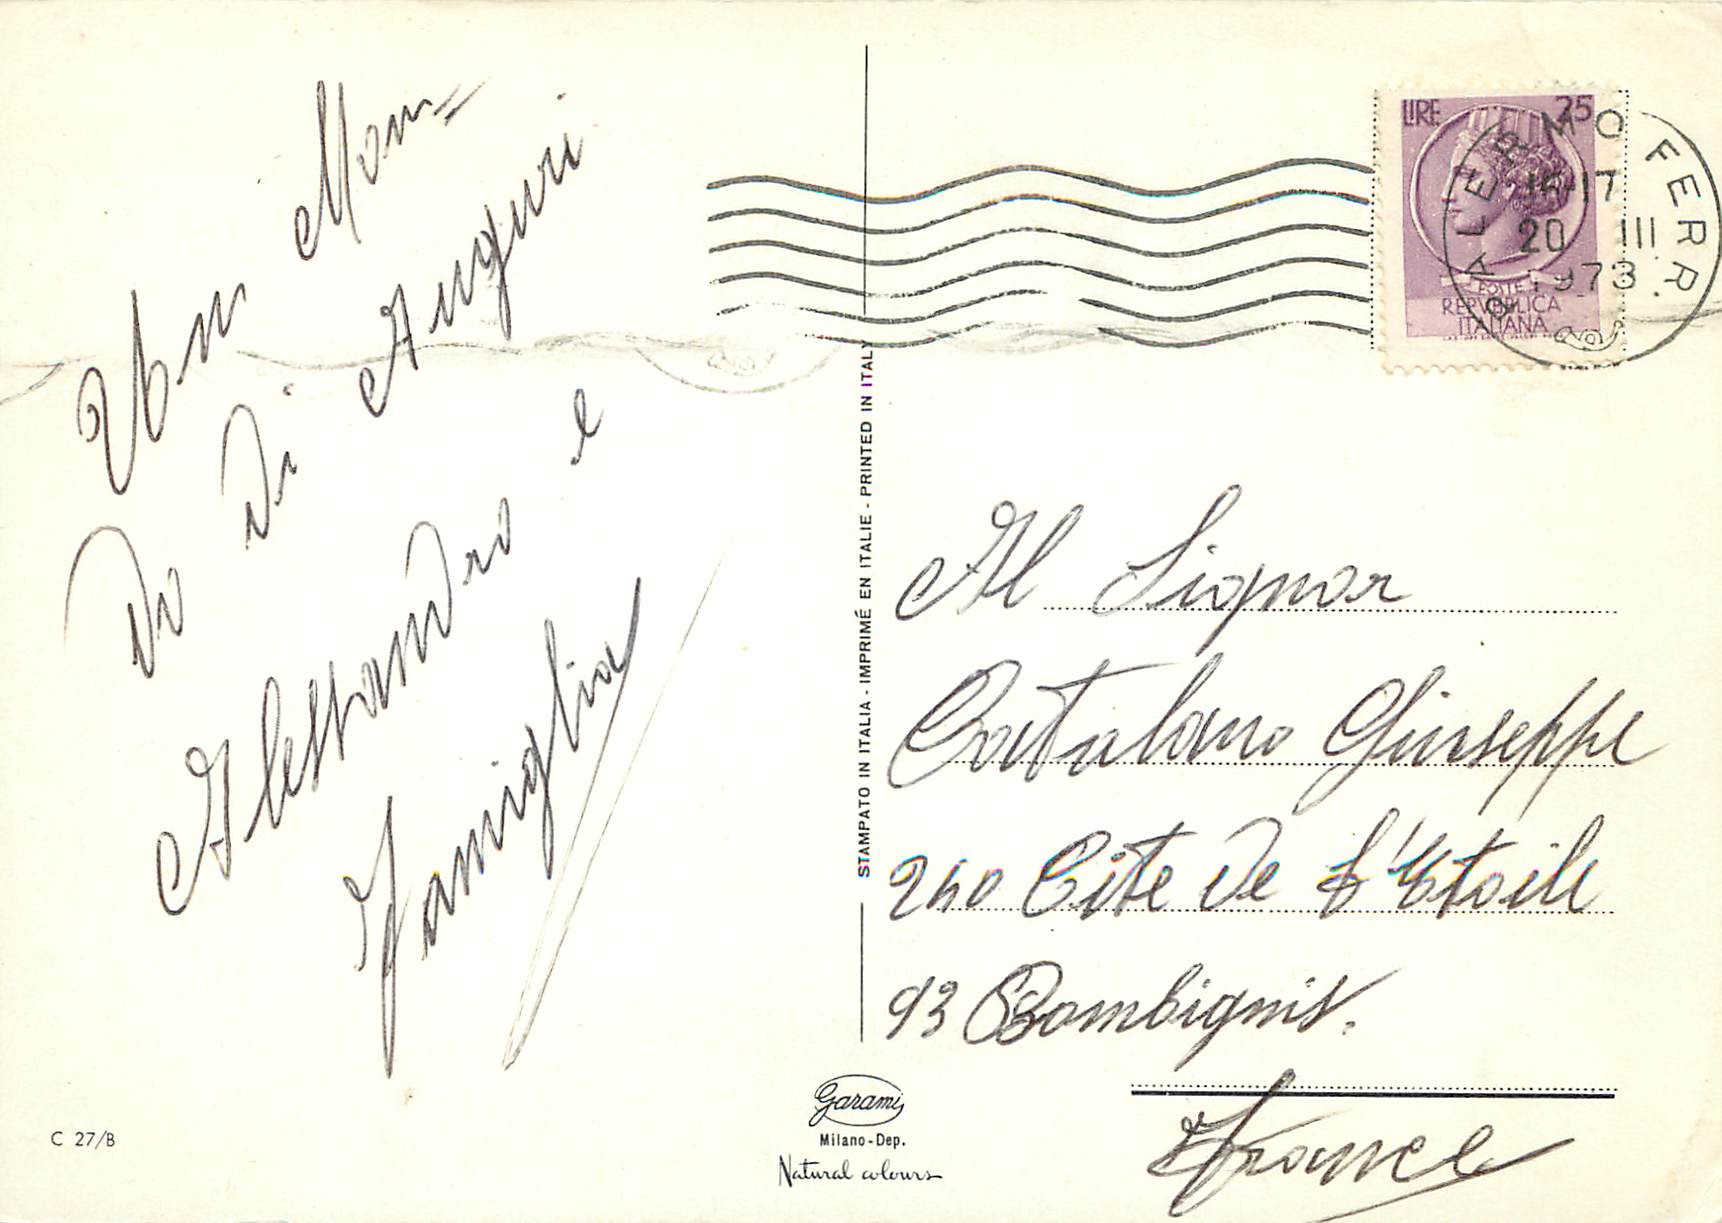 Un Mon=
Do Di Auguri
Alessandro e
Famiglia
STAMPATO IN ITALIA - IMPRIMÉ EN ITALIE - PRINTED IN ITALY
LIRE 25
POSTE
REPVBBLICA
ITALIANA
PALERMO FERR
16-17
20 III
1973
Al Signor
Catalano Giuseppe
240 Cite De L'Etoile
93 Bombignis.
France
Garami
Milano-Dep.
Natural colours
C 27/B